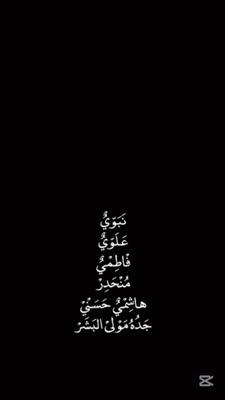 نَبَوّيٌّ
عَلَوّيٌّ
فْاطِمْيٌّ
مُنْحَدِرْ
هاشِمْيٌّ حَسَنْيْ
جَدُهُ مَوْلىْ البَشَرْ